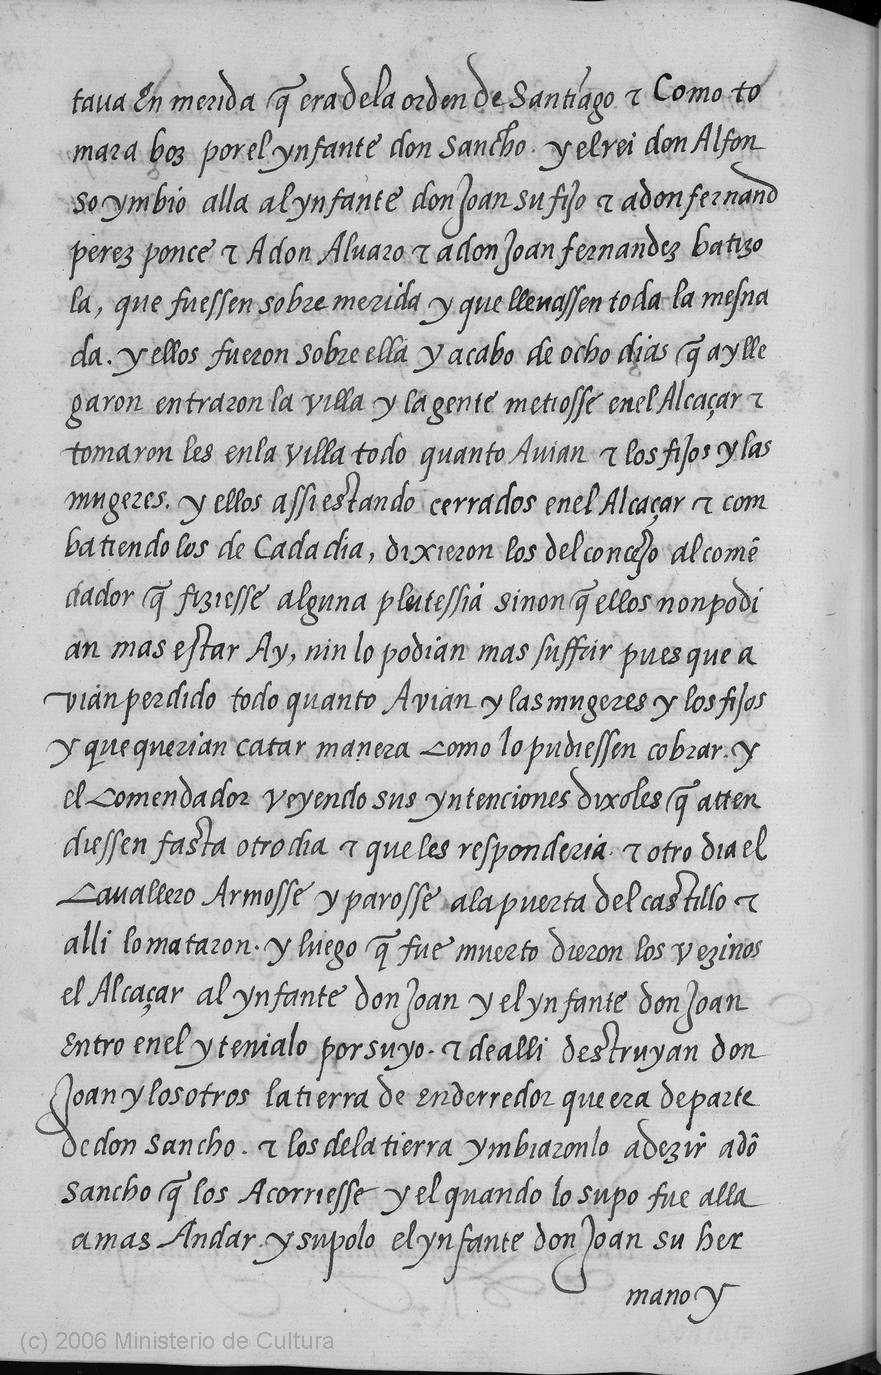 taua En merida q̃ era de la orden de Santiago τ Como to
mara boz por el ynfante don Sancho. y el rei don Alfon
so ymbió alla al ynfante don Joan su fijo τ a don fernand
perez ponce τ A don Aluaro τ a don Joan fernandez batizo
la, que fuessen sobre merida y que lleuassen toda la mesna
da. y ellos fueron sobre ella y acabo de ocho dias q̃ ay lle
garon entraron la villa y la gente metiosse en el Alcaçar τ
tomaron les en la villa todo quanto Auian τ los fijos y las
mugeres. y ellos assi estando cerrados en el Alcaçar τ com
batiendo los de Cada dia, dixieron los del concejo al comẽ
dador q̃ fiziesse alguna pleitessia sinon q̃ ellos non podi
an mas estar Ay, nin lo podian mas suffrir pues que a
vian perdido todo quanto Avian y las mugeres y los fijos
y que querian catar manera como lo pudiessen cobrar. y
el comendador veyendo sus yntenciones dixoles q̃ atten
diessen fasta otro dia τ que les responderia. τ otro dia el
Cauallero Armosse y parosse a la puerta del castillo τ
alli lo mataron. y luego q̃ fue muerto dieron los vezinos
el Alcaçar al ynfante don Joan y el ynfante don Joan
Entro en el y tenialo por suyo. τ de alli destruyan don
Joan y los otros la tierra de enderredor que era de parte
de don Sancho. τ los de la tierra ymbiaronlo a dezir a dõ
Sancho q̃ los Acorriesse y el quando lo supo fue alla
a mas Andar. y supolo el ynfante don Joan su her
mano y
(c) 2006 Ministerio de Cultura